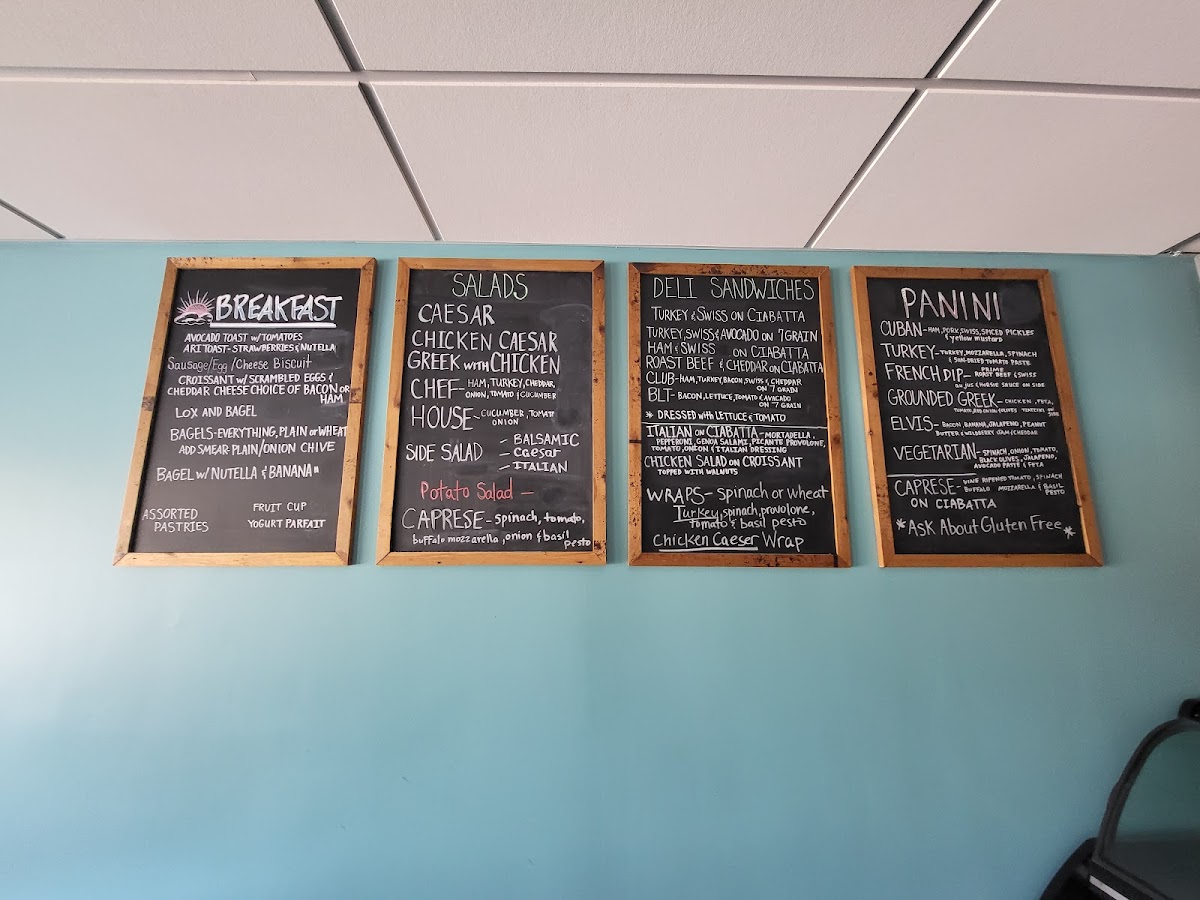 BREAKFAST
AVOCADO TOAST W/ TOMATOES
ARI TOAST- STRAWBERRIES & NUTELLA
Sausage/Egg/Cheese Biscuit
CROISSANT W/ SCRAMBLED EGGS &
CHEDDAR CHEESE CHOICE OF BACON OR
HAM
LOX AND BAGEL
BAGELS-EVERYTHING, PLAIN or WHEAT
ADD SMEAR PLAIN/ONION CHIVE
BAGEL W/ NUTELLA & BANANA
FRUIT CUP
ASSORTED
PASTRIES
YOGURT PARFAIT
SALADS
CAESAR
CHICKEN CAESAR
GREEK WITH CHICKEN
CHEF- HAM, TURKEY, CHEDDAR,
ONION, TOMATO & CUCUMBER
HOUSE- CUCUMBER, TOMATO
ONION
SIDE SALAD - BALSAMIC
- Caesar
- ITALIAN
Potato Salad -
CAPRESE- spinach, tomato,
buffalo mozzarella, onion & basil
pesto
DELI SANDWICHES
TURKEY & SWISS ON CIABATTA
TURKEY, SWISS & AVOCADO ON 7 GRAIN
HAM & SWISS ON CIABATTA
ROAST BEEF & CHEDDAR ON CIABATTA
CLUB- HAM, TURKEY, BACON, SWISS & CHEDDAR
ON 7 GRAIN
BLT- BACON, LETTUCE, TOMATO & AVACADO
ON 7 GRAIN
* DRESSED WITH LETTUCE & TOMATO
ITALIAN ON CIABATTA- MORTADELLA,
PEPPERONI, GENOA SALAMI, PICANTE PROVOLONE,
TOMATO, ONION & ITALIAN DRESSING
CHICKEN SALAD ON CROISSANT
TOPPED WITH WALNUTS
WRAPS- Spinach or Wheat
Turkey, spinach, provolone,
tomato & basil pesto
Chicken Caeser Wrap
PANINI
CUBAN- HAM, PORK, SWISS, SPICED PICKLES
& yellow mustard
TURKEY- TURKEY, MOZZARELLA, SPINACH
& SUN-DRIED TOMATO PASTE
FRENCH DIP- PRIME ROAST BEEF & SWISS
au jus & horsie SAUCE ON SIDE
GROUNDED GREEK- CHICKEN, FETA,
TOMATO, RED ONION & OLIVES TZATZIKI ON SIDE
ELVIS- BACON, BANANA, JALAPENO, PEANUT
BUTTER & WILDBERRY JAM & CHEDDAR
VEGETARIAN- SPINACH, ONION, TOMATO,
BLACK OLIVES, JALAPENO,
AVOCADO PASTE & FETA
CAPRESE- VINE RIPENED TOMATO, SPINACH
BUFFALO MOZZARELLA & BASIL PESTO
ON CIABATTA
*ASK About Gluten Free*